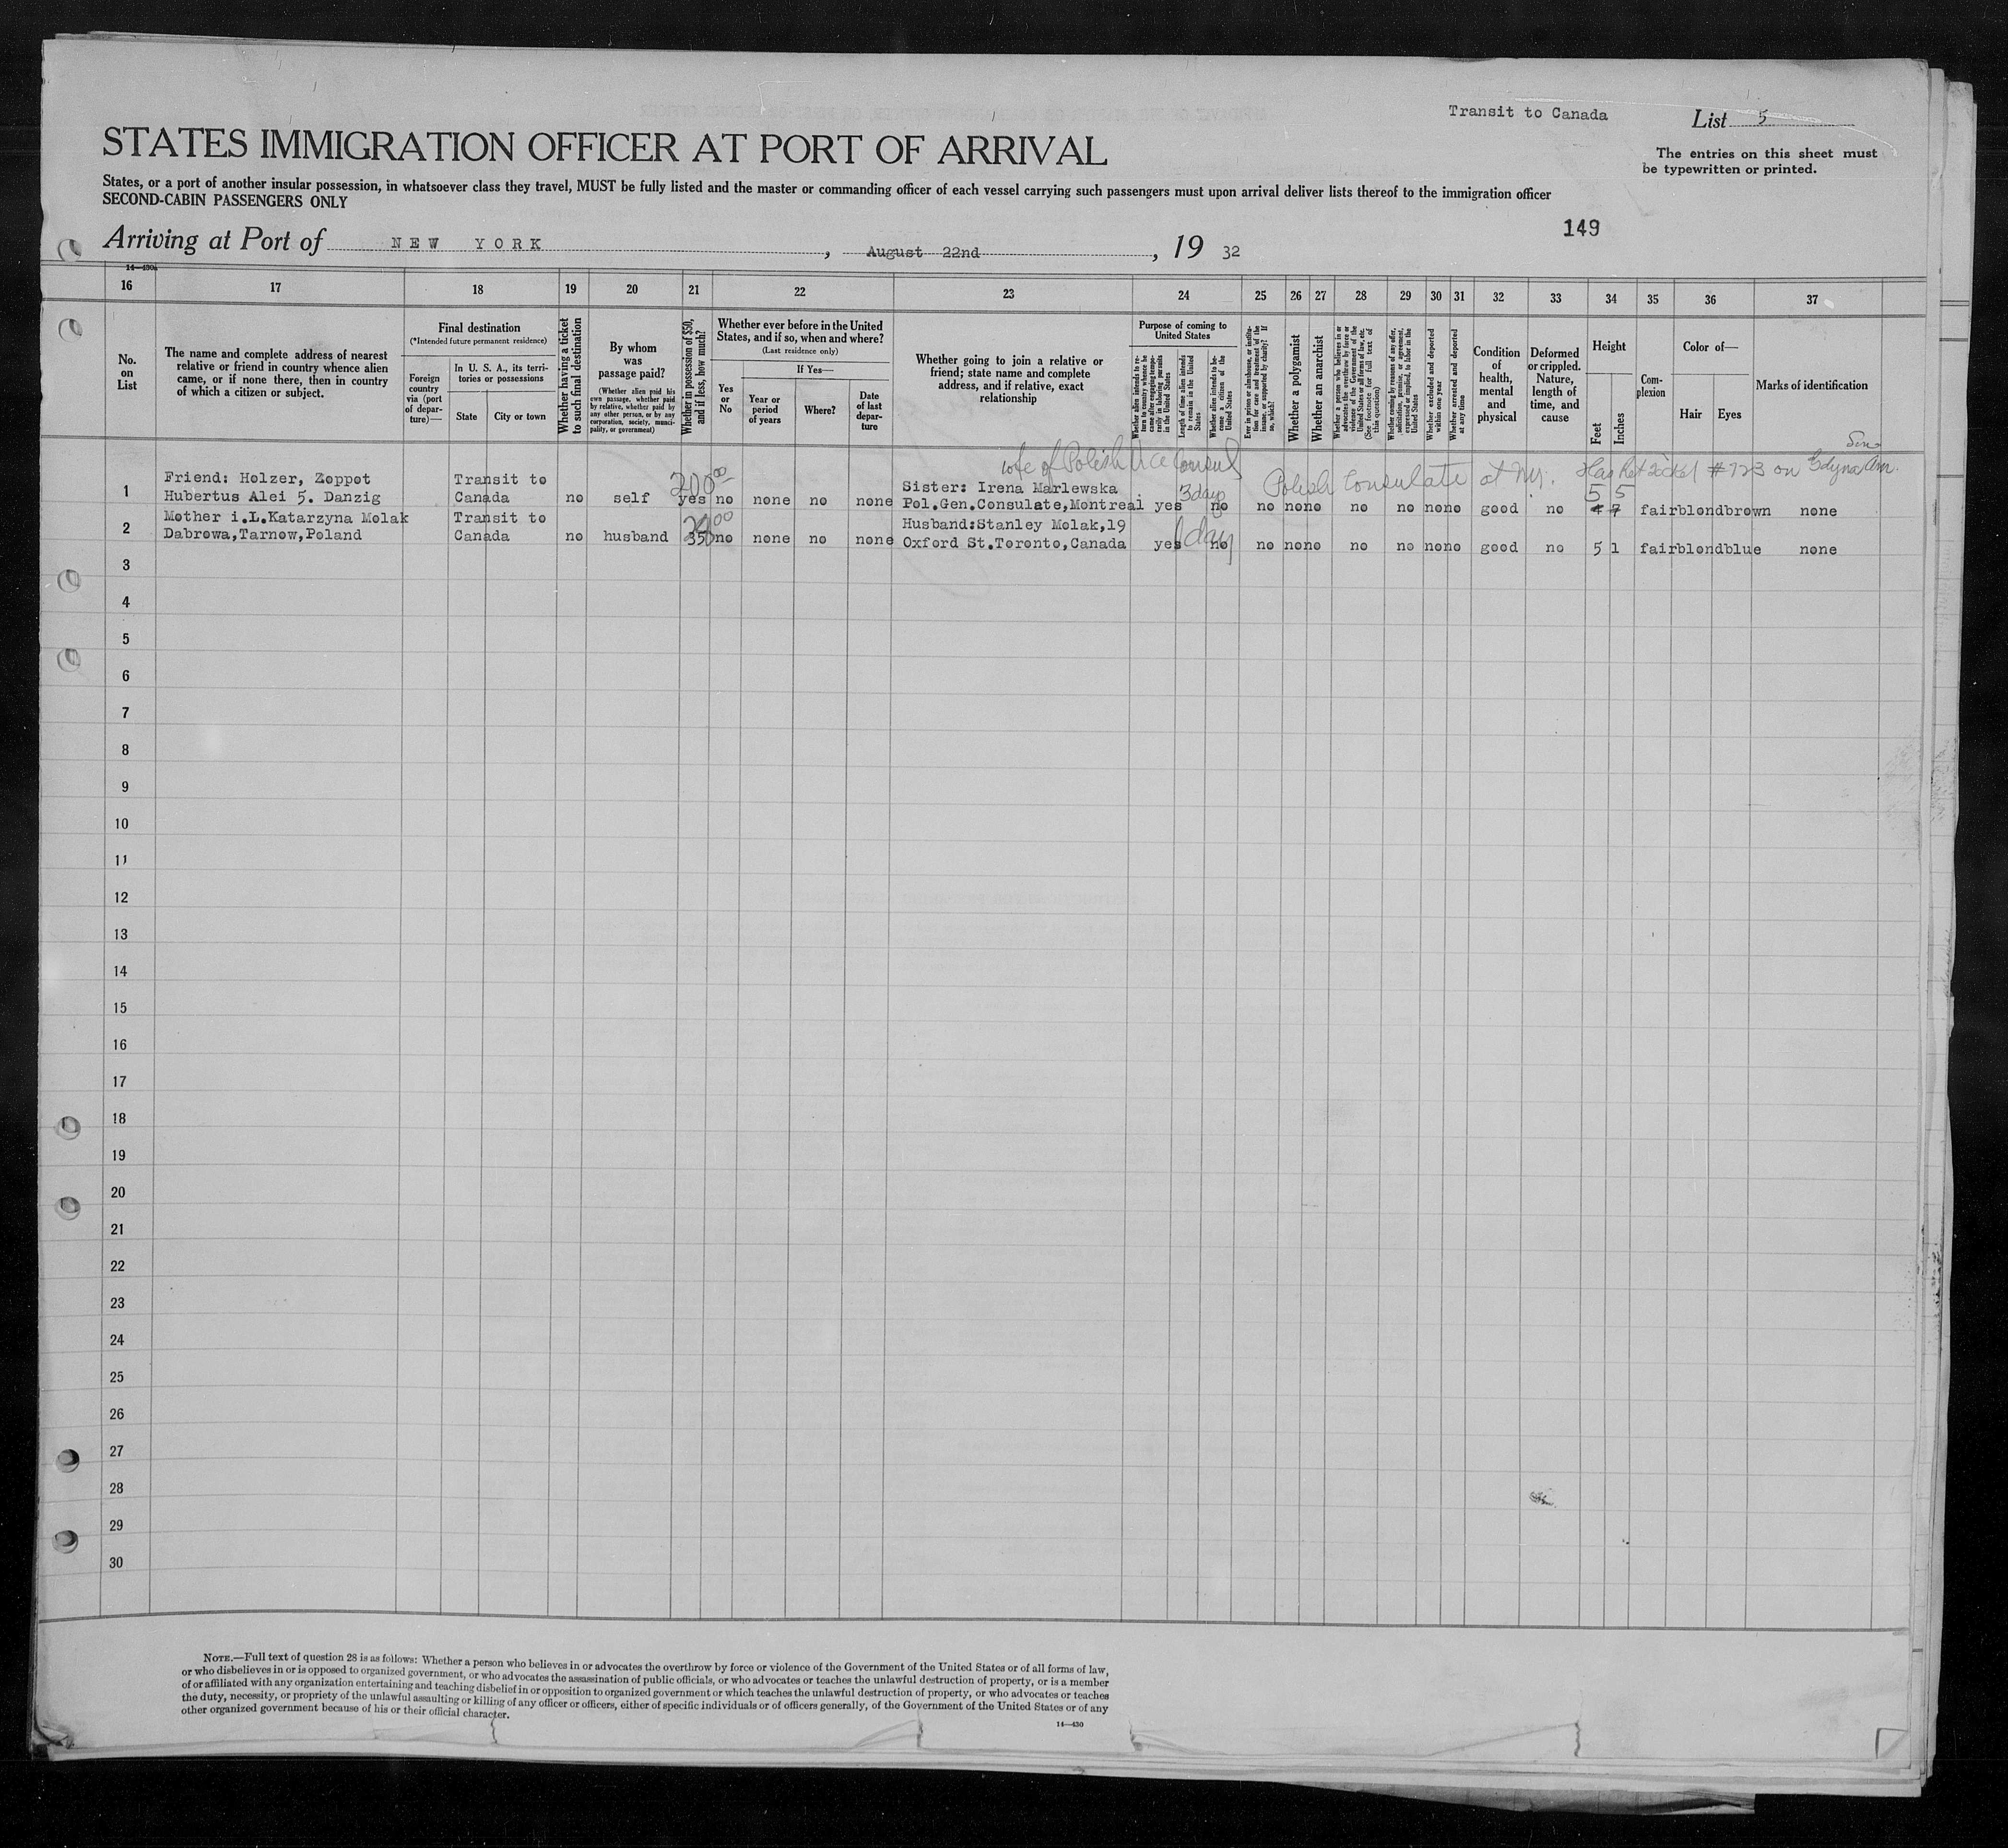 Transit to Canada
List 5
STATES IMMIGRATION OFFICER AT PORT OF ARRIVAL
The entries on this sheet must
be typewritten or printed.
States, or a port of another insular possession, in whatsoever class they travel, MUST be fully listed and the master or commanding officer of each vessel carrying such passengers must upon arrival deliver lists thereof to the immigration officer
SECOND-CABIN PASSENGERS ONLY
149
Arriving at Port of NEW YORK, August 22nd, 19 32
14—430a
16 17 18 19 20 21 22 23 24 25 26 27 28 29 30 31 32 33 34 35 36 37
No. on List
The name and complete address of nearest
relative or friend in country whence alien
came, or if none there, then in country
of which a citizen or subject.
Final destination
(*Intended future permanent residence)
Foreign country via (port of departure)—
In U. S. A., its territories or possessions
State
City or town
Whether having a ticket to such final destination
By whom was passage paid?
(Whether alien paid his own passage, whether paid by relative, whether paid by any other person, or by any corporation, society, municipality, or government)
Whether in possession of $50, and if less, how much?
Whether ever before in the United
States, and if so, when and where?
(Last residence only)
Yes or No
If Yes—
Year or period of years
Where?
Date of last departure
Whether going to join a relative or
friend; state name and complete
address, and if relative, exact
relationship
Purpose of coming to United States
Whether alien intends to return to country whence he came after engaging temporarily in laboring pursuits in the United States
Length of time alien intends to remain in the United States
Whether alien intends to become a citizen of the United States
Ever in prison or almshouse, or institution for care and treatment of the insane, or supported by charity? If so, which?
Whether a polygamist
Whether an anarchist
Whether a person who believes in or advocates the overthrow by force or violence of the Government of the United States or all forms of law, etc. (See footnote for full text of this question)
Whether coming by reasons of any offer, solicitation, promise, or agreement, expressed or implied, to labor in the United States
Whether excluded and deported within one year
Whether arrested and deported at any time
Condition of health, mental and physical
Deformed or crippled. Nature, length of time, and cause
Height
Feet
Inches
Complexion
Color of—
Hair
Eyes
Marks of identification
wife of Polish Vice Consul
Polish Consulate at NY. Has Ret ticket #723 on Gdynia Am.
1 Friend: Holzer, Zoppot
Hubertus Alei 5. Danzig
Transit to
Canada
no self yes 200 00 no none no none
Sister: Irena Marlewska
Pol.Gen.Consulate,Montreal
yes 3days no no no no no no no no good no 4 7 5 5 fair blond brown none
2 Mother i.L.Katarzyna Molak
Dabrowa,Tarnow,Poland
Transit to
Canada
no husband 350 no none no none
Husband:Stanley Molak,19
Oxford St.Toronto,Canada
yes 1 day no no no no no no no no good no 5 1 fair blond blue none
3
4
5
6
7
8
9
10
11
12
13
14
15
16
17
18
19
20
21
22
23
24
25
26
27
28
29
30
NOTE.—Full text of question 28 is as follows: Whether a person who believes in or advocates the overthrow by force or violence of the Government of the United States or of all forms of law,
or who disbelieves in or is opposed to organized government, or who advocates the assassination of public officials, or who advocates or teaches the unlawful destruction of property, or is a member
of or affiliated with any organization entertaining and teaching disbelief in or opposition to organized government or which teaches the unlawful destruction of property, or who advocates or teaches
the duty, necessity, or propriety of the unlawful assaulting or killing of any officer or officers, either of specific individuals or of officers generally, of the Government of the United States or of any
other organized government because of his or their official character.
14—430